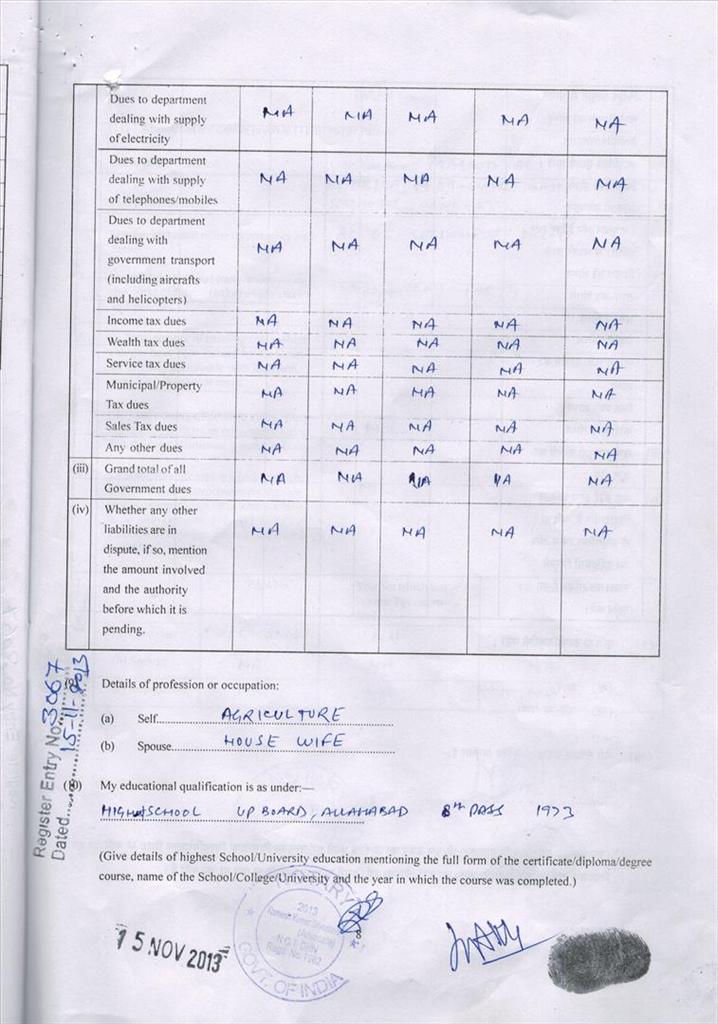 Dues to department
dealing with supply
of electricity
NA NA NA NA NA
Dues to department
dealing with supply
of telephones/mobiles
NA NA NA NA NA
Dues to department
dealing with
government transport
(including aircrafts
and helicopters)
NA NA NA NA NA
Income tax dues NA NA NA NA NA
Wealth tax dues NA NA NA NA NA
Service tax dues NA NA NA NA NA
Municipal/Property
Tax dues
NA NA NA NA NA
Sales Tax dues NA NA NA NA NA
Any other dues NA NA NA NA NA
(iii) Grand total of all
Government dues
NA NA NA NA NA
(iv) Whether any other
liabilities are in
dispute, if so, mention
the amount involved
and the authority
before which it is
pending.
NA NA NA NA NA
Register Entry No. 3067
Dated. 15-11-2013
(9) Details of profession or occupation:
(a) Self AGRICULTURE
(b) Spouse HOUSE WIFE
(10) My educational qualification is as under:—
HIGH SCHOOL UP BOARD, ALLAHABAD 8th PASS 1973
(Give details of highest School/University education mentioning the full form of the certificate/diploma/degree
course, name of the School/College/University and the year in which the course was completed.)
NOTARY
2013
GOVT. OF INDIA
8
15 NOV 2013